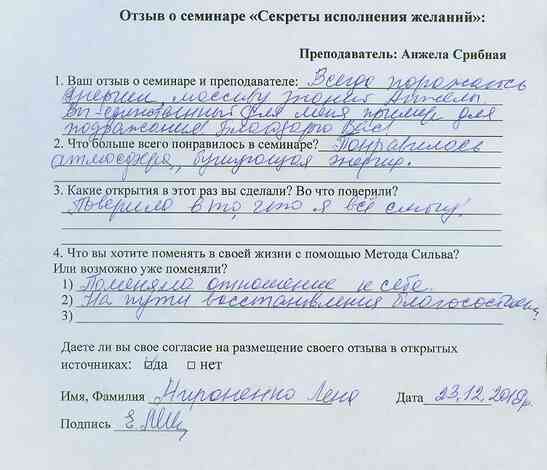 Отзыв о семинаре «Секреты исполнения желаний»:
Преподаватель: Анжела Срибная
1. Ваш отзыв о семинаре и преподавателе: Всегда поражаюсь
энергии, массиву знаний Анжелы
Вы единственный для меня пример для
подражания Благодарю Вас!
2. Что больше всего понравилось в семинаре? Понравилось
атмосфера, бушующая энергия.
3. Какие открытия в этот раз вы сделали? Во что поверили?
Поверила в то, что я всё смогу!
4. Что вы хотите поменять в своей жизни с помощью Метода Сильва?
Или возможно уже поменяли?
1) Поменяла отношение к себе.
2) На пути восстановления
3)
Даете ли вы свое согласие на размещение своего отзыва в открытых
источниках: ☑да □ нет
Имя, Фамилия Мироненко Лена Дата 23.12.2018г.
Подпись